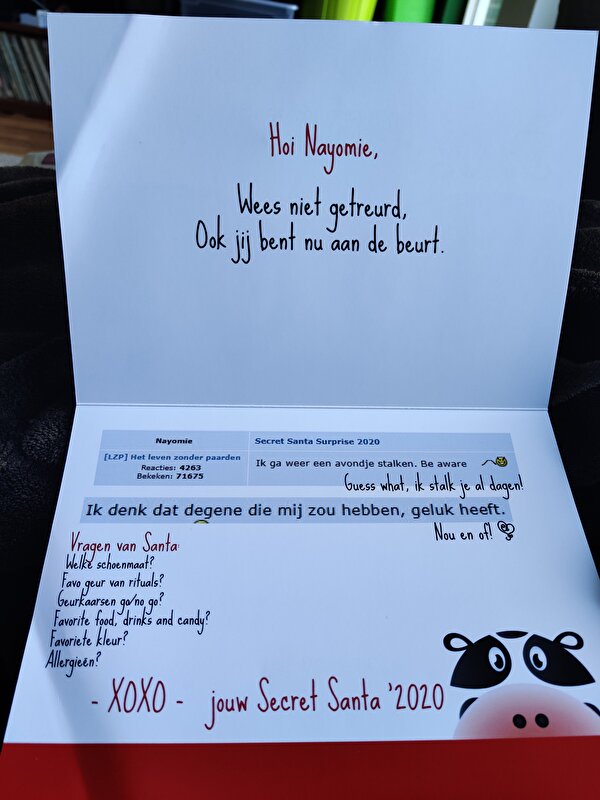 Hoi Nayomie,
Wees niet getreurd,
Ook jij bent nu aan de beurt.
Nayomie
Secret Santa Surprise 2020
[LZP] Het leven zonder paarden
Reacties: 4263
Bekeken: 71675
Ik ga weer een avondje stalken. Be aware
Guess what, ik stalk je al dagen!
Ik denk dat degene die mij zou hebben, geluk heeft.
Nou en of!
Vragen van Santa:
Welke schoenmaat?
Favo geur van rituals?
Geurkaarsen go/no go?
Favorite food, drinks and candy?
Favoriete kleur?
Allergieën?
- XOXO - jouw Secret Santa '2020